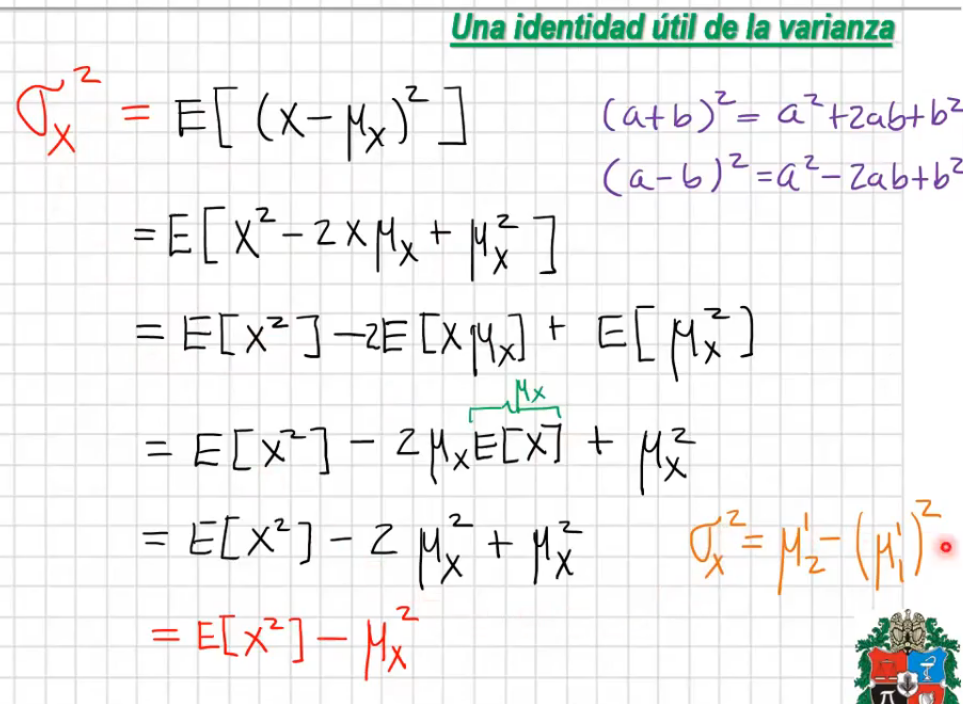 Una identidad útil de la varianza
σₓ² = E[(x-μₓ)²]
(a+b)² = a²+2ab+b²
(a-b)² = a²-2ab+b²
= E[x²-2xμₓ + μₓ²]
= E[x²] -2E[xμₓ] + E[μₓ²]
μₓ
= E[x²] - 2μₓE[x] + μₓ²
= E[x²] - 2μₓ² + μₓ²
σₓ² = μ₂' - (μ₁')²
= E[x²] - μₓ²
π